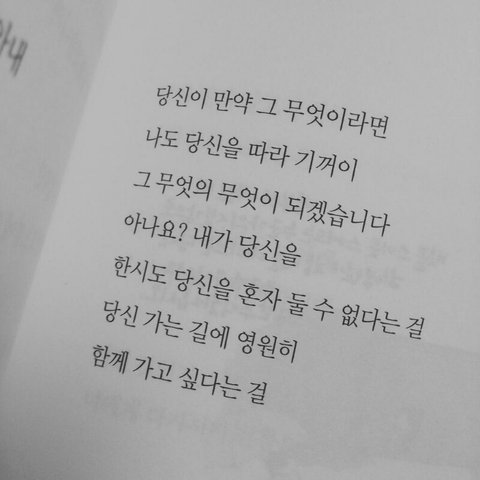 당신이 만약 그 무엇이라면
나도 당신을 따라 기꺼이
그 무엇의 무엇이 되겠습니다
아나요? 내가 당신을
한시도 당신을 혼자 둘 수 없다는 걸
당신 가는 길에 영원히
함께 가고 싶다는 걸